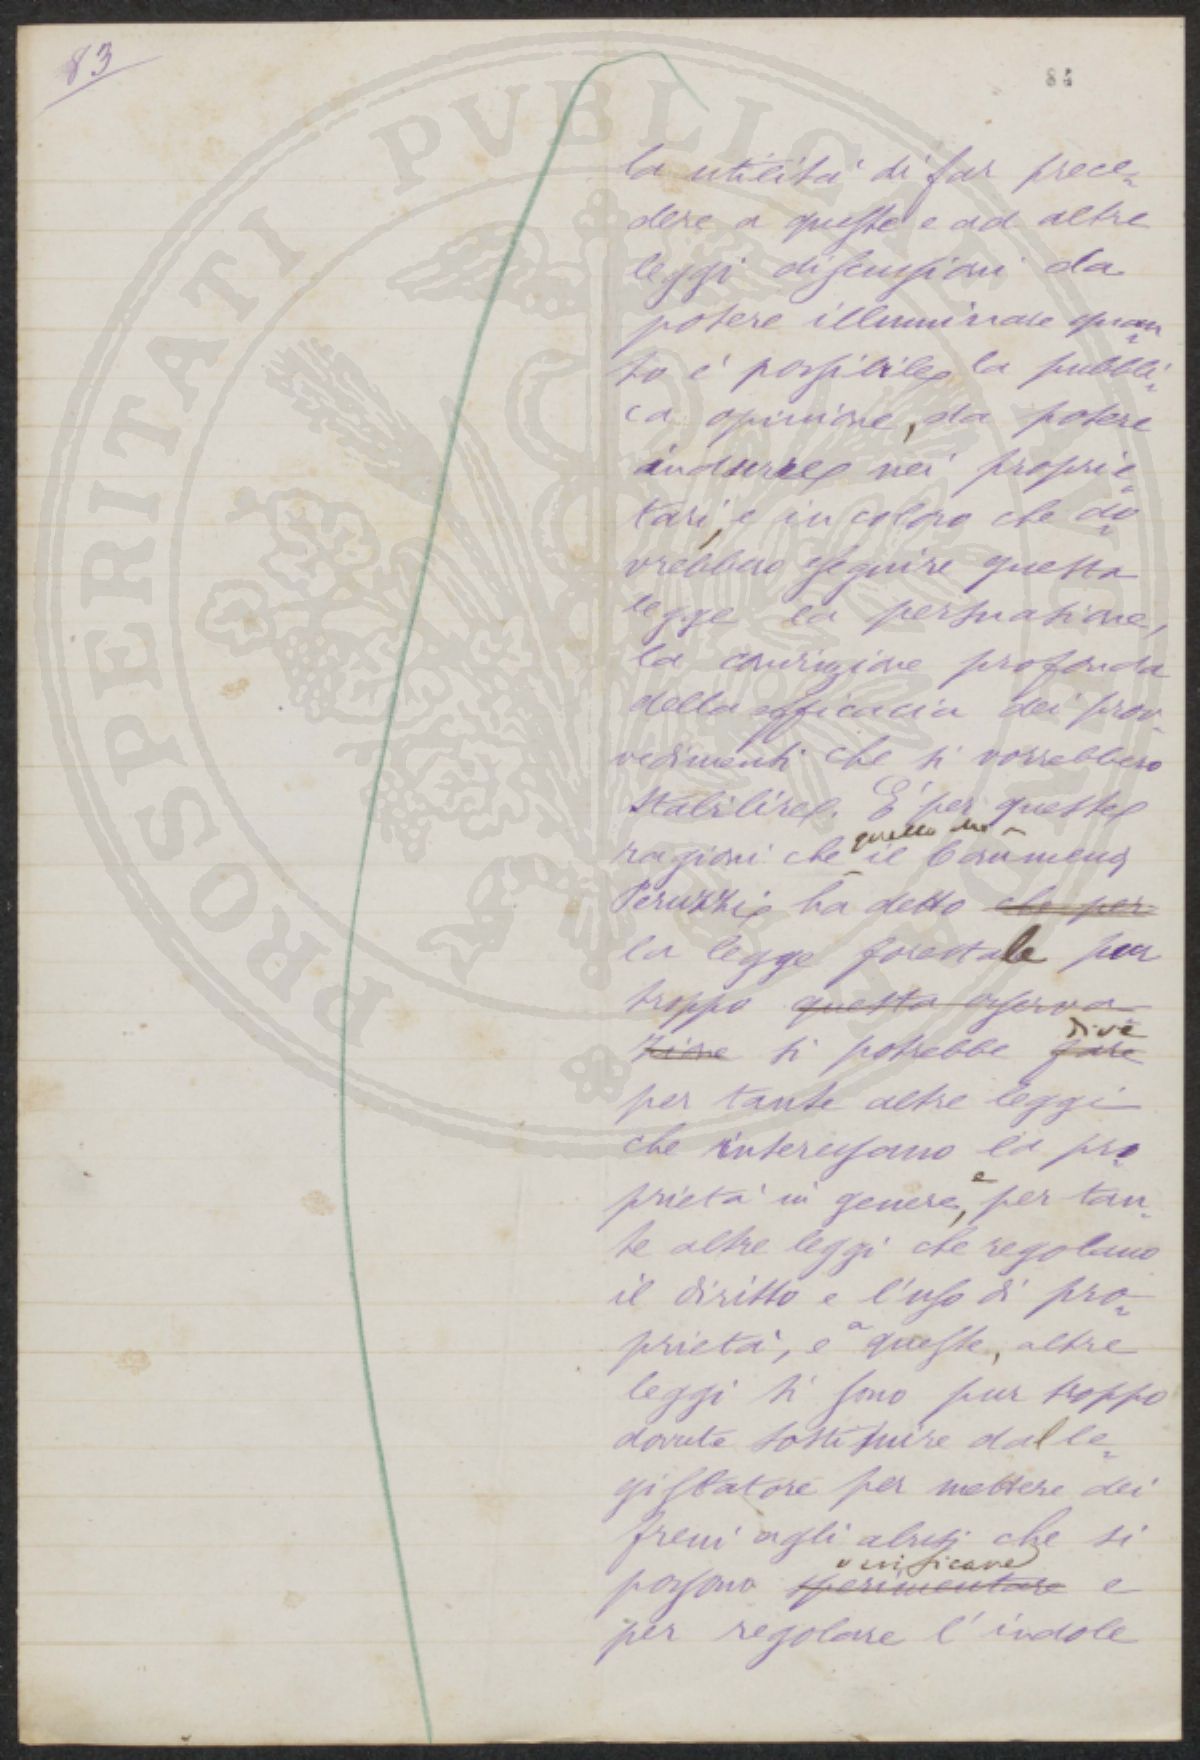 83
84
PROSPERITATI PUBLICAE
la utilità di far prece=
dere a queste e ad altre
leggi discussioni da
potere illuminare quan=
to è possibile la pubbli=
ca opinione, da potere
indurre nei proprie=
tari, e in coloro che do=
vrebbero eseguire questa
legge la persuasione,
la convinzione profonda
della efficacia dei prov=
vedimenti che si vorrebbero
stabilire. È per queste
ragioni che quello che il Commend
Peruzzi ha detto che per
la legge forestale pur
troppo questa osserva
zione si potrebbe fare dire
per tante altre leggi
che interessano la pro=
prietà in genere, e per tan=
te altre leggi che regolano
il diritto e l'uso di pro=
prietà, e a queste, altre
leggi si sono pur troppo
dovute sostituire dal le=
gislatore per mettere dei
freni agli abusi che si
possono sperimentare verificare e
per regolare l'indole